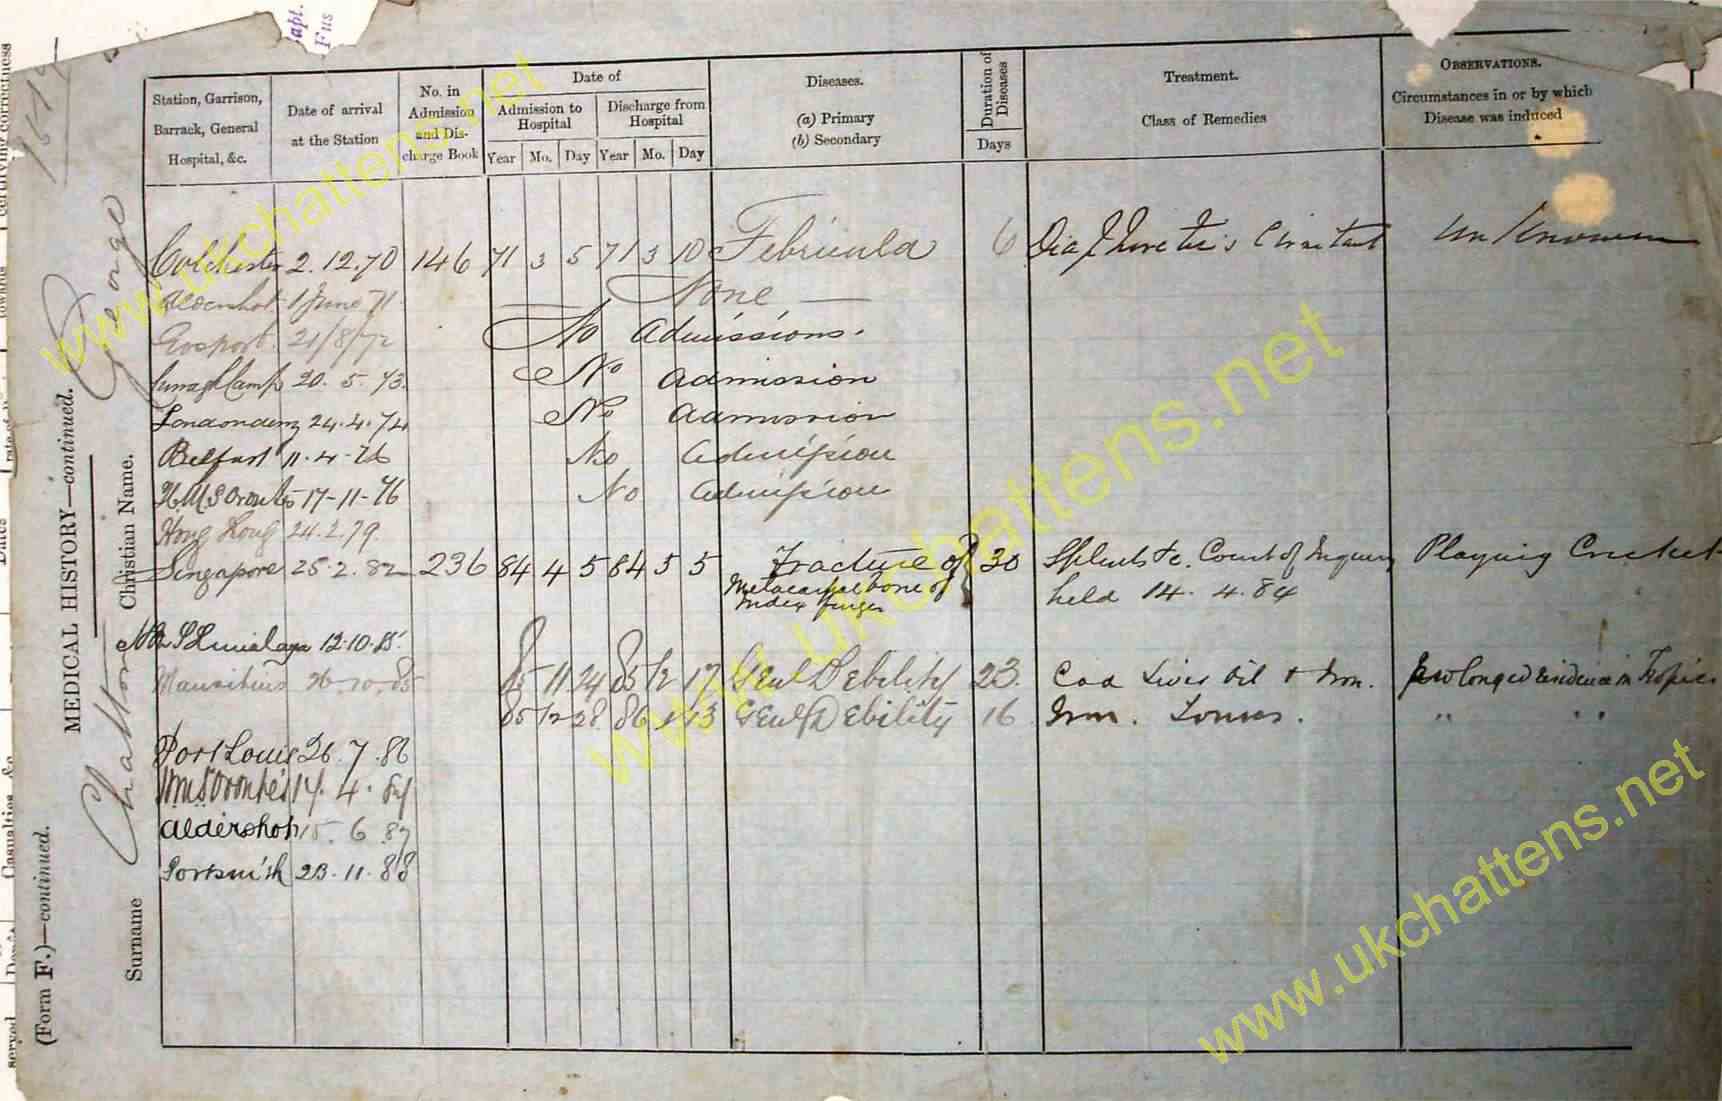 Capt.
Fus
1514
(Form F.)—continued.
MEDICAL HISTORY—continued.
Surname Chatton Christian Name. George
Station, Garrison, Barrack, General Hospital, &c.
Date of arrival at the Station
No. in Admission and Discharge Book
Date of
Admission to Hospital
Discharge from Hospital
Year Mo. Day Year Mo. Day
Diseases.
(a) Primary
(b) Secondary
Duration of Diseases
Days
Treatment.
Class of Remedies
OBSERVATIONS.
Circumstances in or by which Disease was induced
Colchester 2.12.70 146 71 3 5 71 3 10 Febricula 6 Unknown
Aldershot 1 June 71 None
Gosport 21/8/72 No Admissions.
Curragh Camp 20.5.73. No Admission
Londonderry 24.4.74 No Admission
Belfast 11-4-76 No Admission
H.M.S Orontes 17-11-76 No Admission
Hong Kong 24.2.79.
Singapore 25.2.82 236 84 4 5 84 5 5 Fracture of 30 Splints &c. Court of Inquiry Playing Cricket
Metacarpal bone of held 14.4.84
Index finger
Himalaya 12-10-85
Mauritius 26.10.85 85 11 24 85 12 17 Genl Debility 23. Cod Liver Oil & Iron. prolonged residence in Tropics
85 12 28 86 1 13 Genl Debility 16 Iron. Tonics. " "
Port Louis 26.7.86
HMS Orontes 14.4.87
Aldershot 15.6.87
Portsm'th 23.11.88
www.ukchattens.net
www.ukchattens.net
www.ukchattens.net